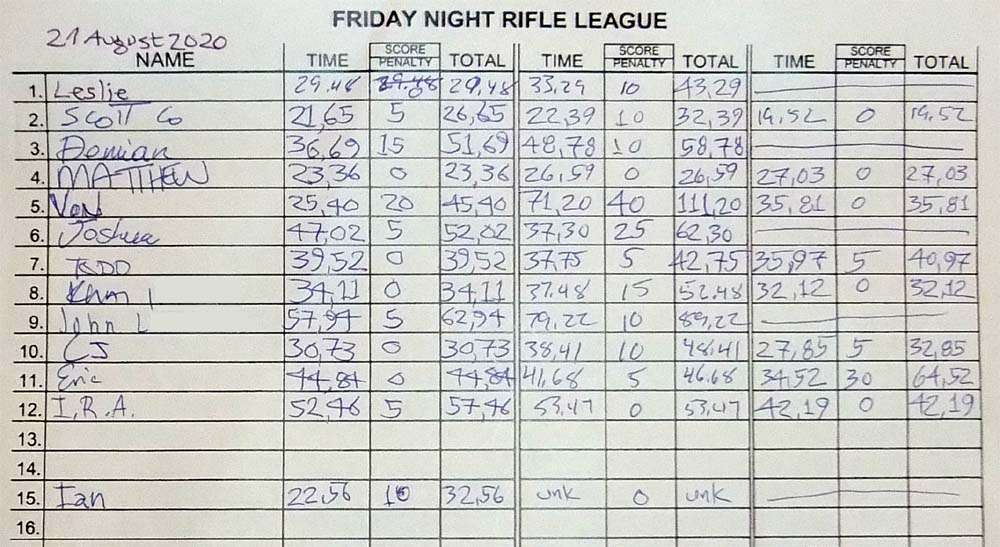 FRIDAY NIGHT RIFLE LEAGUE
21 August 2020
NAME TIME SCORE PENALTY TOTAL TIME SCORE PENALTY TOTAL TIME SCORE PENALTY TOTAL
1. Leslie 29.48 29.48 29,48 33,29 10 43,29
2. SCOTT Co 21,65 5 26,65 22,39 10 32,39 19,52 0 19,52
3. Demian 36,69 15 51,69 48,78 10 58,78
4. MATTHEW 23,36 0 23,36 26,59 0 26,59 27,03 0 27,03
5. VON 25,40 20 45,40 71,20 40 111,20 35,81 0 35,81
6. Joshua 47,02 5 52,02 37,30 25 62,30
7. 39,52 0 39,52 37,75 5 42,75 35,97 5 40,97
8. 34,11 0 34,11 37.48 15 52.48 32,12 0 32,12
9. John L 57,94 5 62,94 79,22 10 89,22
10. CJ 30,73 0 30,73 38,41 10 48,41 27,85 5 32,85
11. Eric 44,84 0 44,84 41,68 5 46.68 34,52 30 64,52
12. I.R.A. 52,46 5 57,46 53,47 0 53,47 42,19 0 42,19
13.
14.
15. Ian 22,56 10 32,56 unk 0 unk
16.